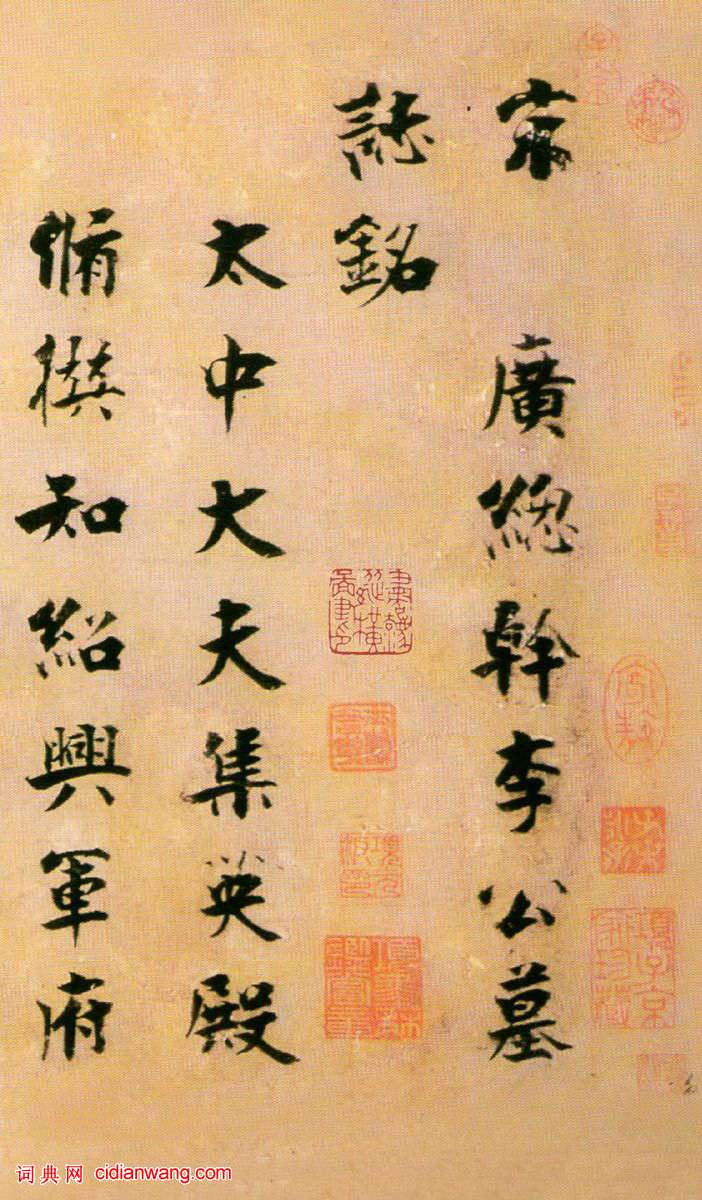 宋 廣總幹李公墓
誌銘
太中大夫集英殿
脩撰知紹興軍府
項子京家珍藏
词典网 cidianwang.com